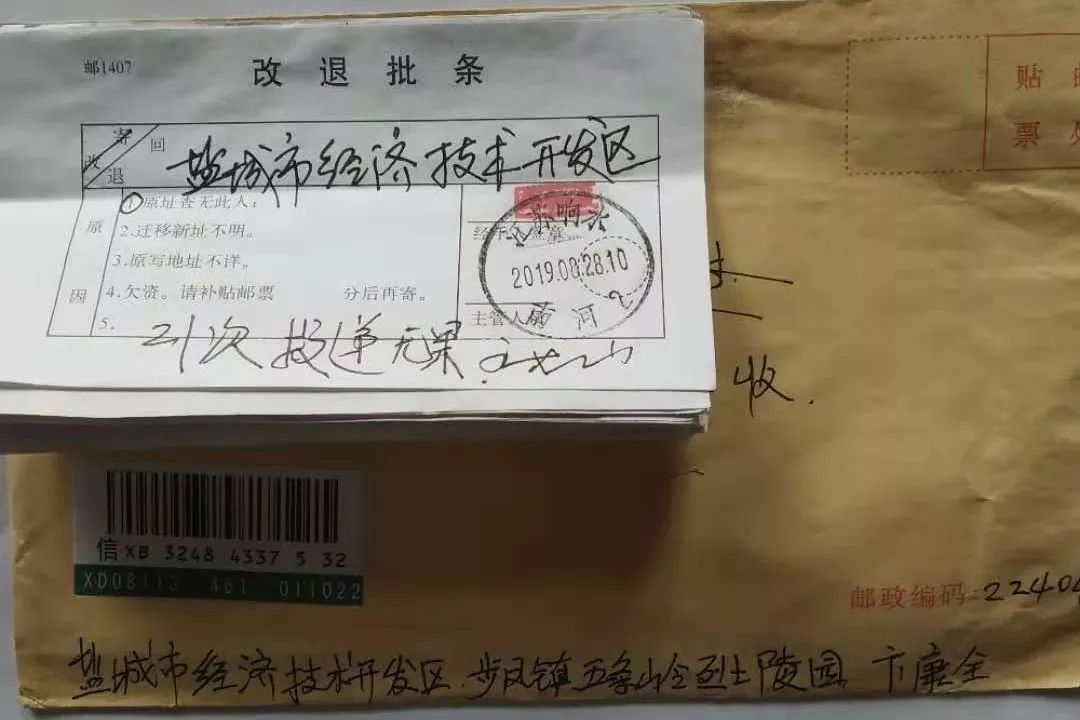 邮1407
改退批条
寄 改 退 回
盐城市经济技术开发区
原因
1.原址查无此人;
2.迁移新址不明。
3.原写地址不详。
4.欠资。请补贴邮票 分后再寄。
5.
经手人盖章
2019.08.28.10
主管人员
21次投递无果.
贴
票
收.
信 XB 3248 4337 5 32
461 011022
邮政编码:
盐城市经济技术开发区.步凤镇五条岭烈士陵园 卞康全